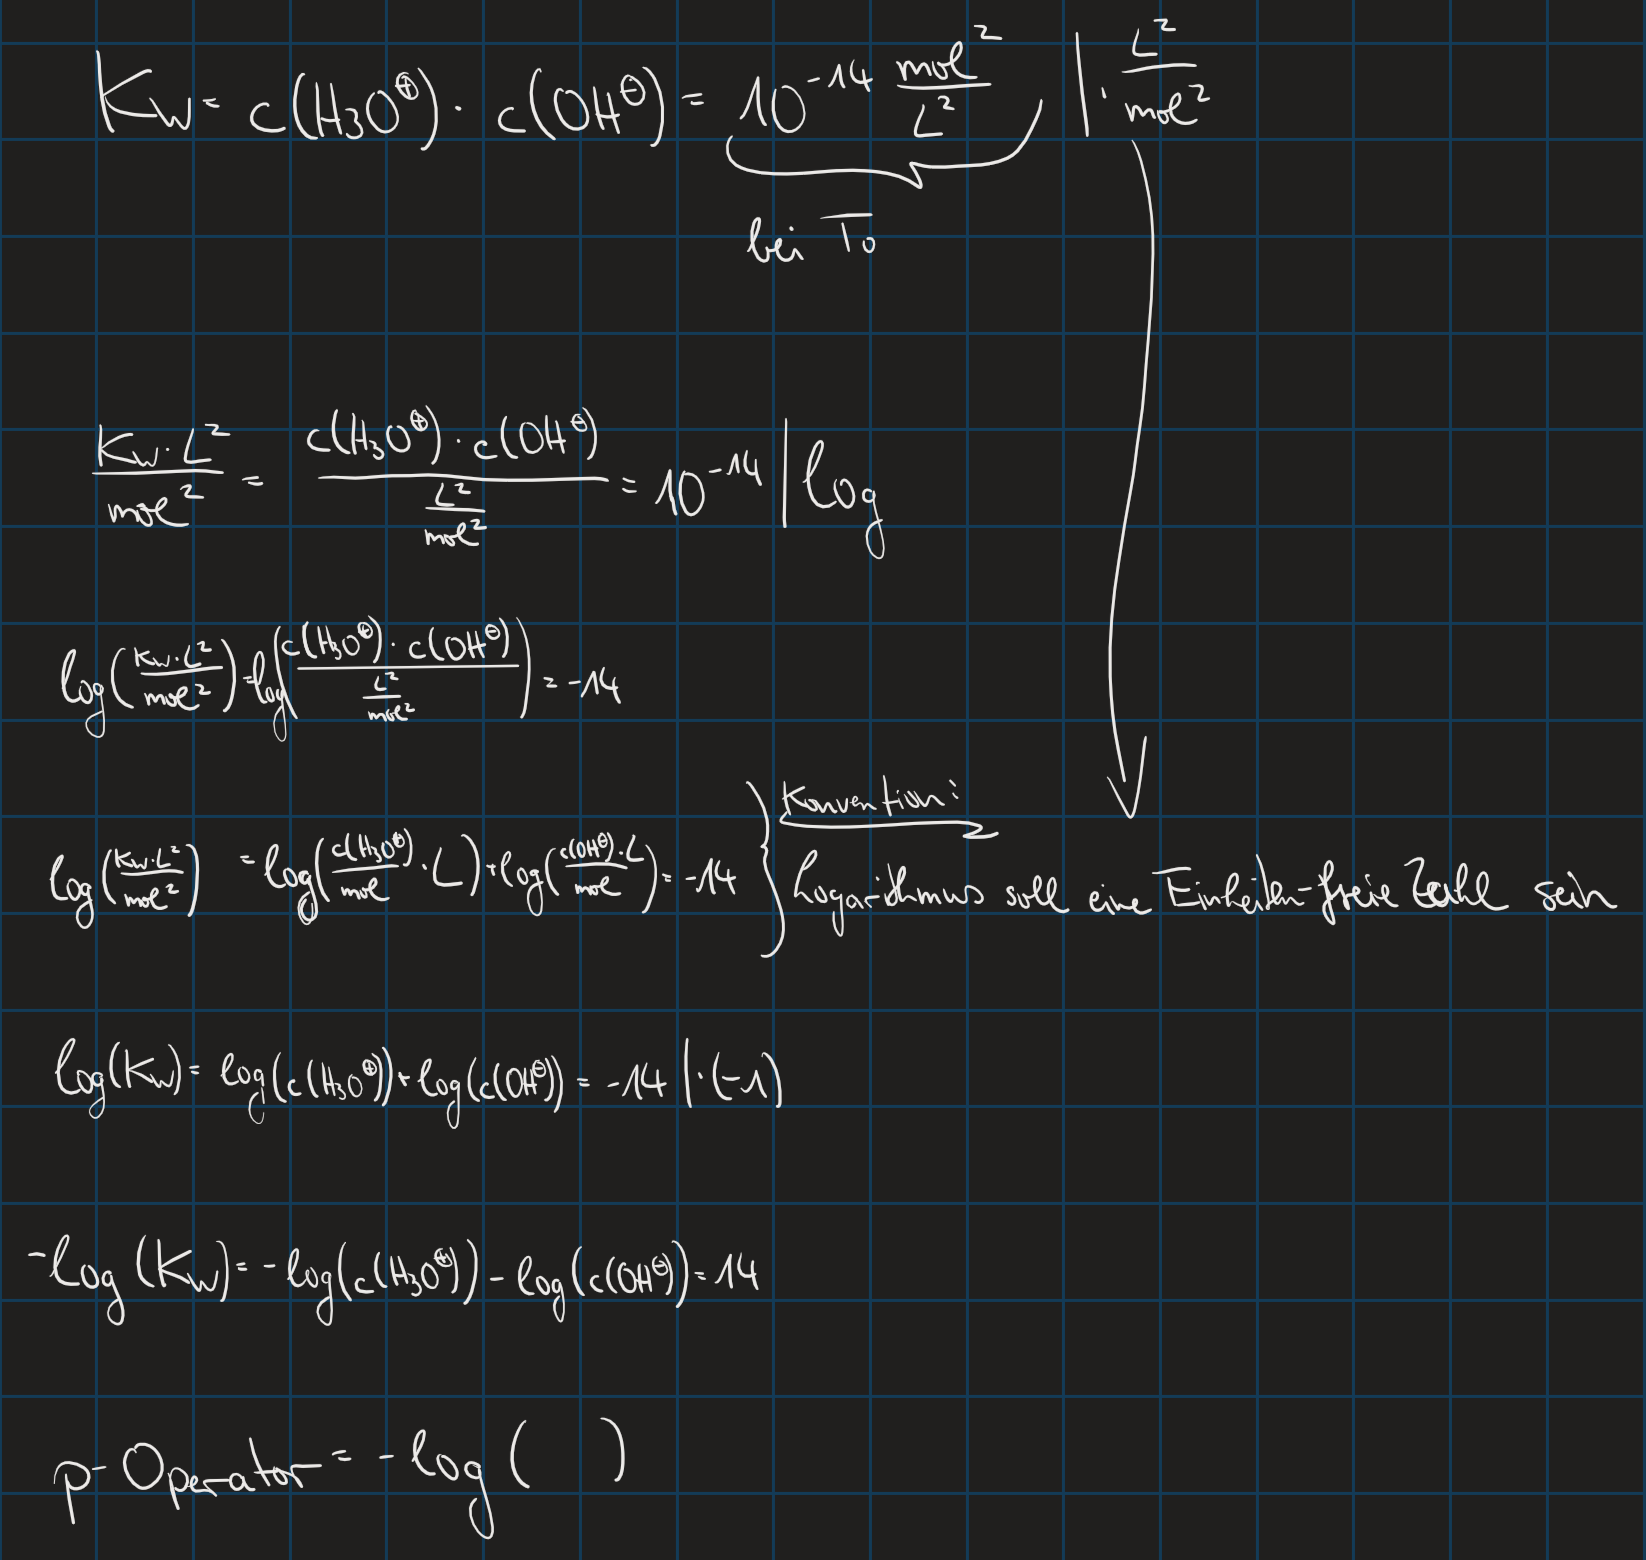 K_W = c(H₃O⊕) · c(OH⊖) = 10⁻¹⁴ mol²/L² | · L²/mol²
bei T₀
K_W · L²/mol² = (c(H₃O⊕) · c(OH⊖))/(L²/mol²) = 10⁻¹⁴ | log
log(K_W · L²/mol²) = log((c(H₃O⊕) · c(OH⊖))/(L²/mol²)) = -14
Konvention:
log(K_W · L²/mol²) = log(c(H₃O⊕)/mol · L) + log(c(OH⊖) · L/mol) = -14 } Logarithmus soll eine Einheiten-freie Zahl sein
log(K_W) = log(c(H₃O⊕)) + log(c(OH⊖)) = -14 | · (-1)
-log(K_W) = -log(c(H₃O⊕)) - log(c(OH⊖)) = 14
p-Operator = -log( )